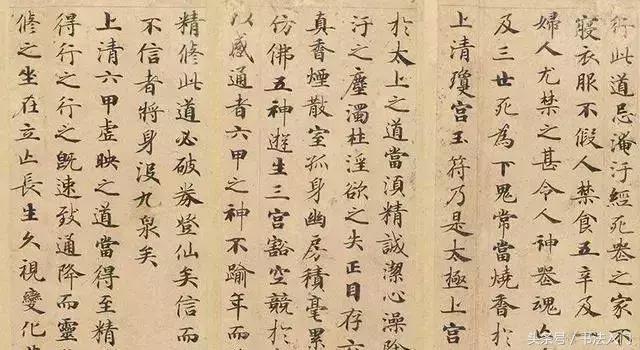 行此道忌淹汙經死喪之家不
寢衣服不假人禁食五辛及一
婦人尤禁之甚令人神喪魂亡
及三世死為下鬼常當燒香於
上清瓊宮玉符乃是太極上宮
於太上之道當須精誠潔心澡除
汙之塵濁杜淫欲之失正目存六
真香煙散室孤身幽房積毫累
仿佛五神遊生三宮豁空競於
以感通者六甲之神不踰年而
精修此道必破券登仙矣信而
不信者將身沒九泉矣
上清六甲虛映之道當得至精
得行之行之既速致通降而靈
修之坐在立亡長生久視變化
头条号 / 书法入门